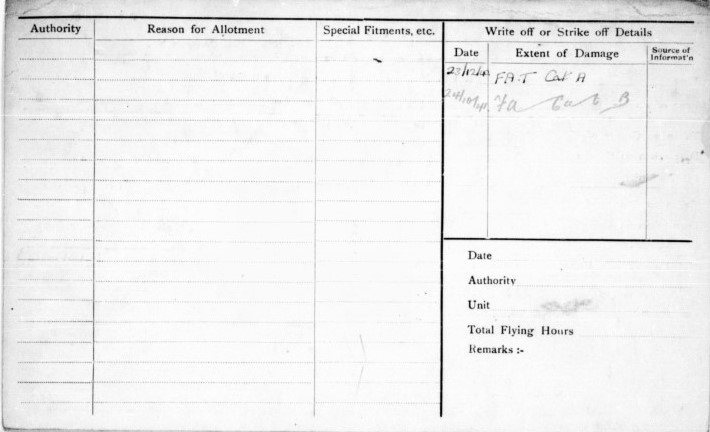 Authority Reason for Allotment Special Fitments, etc. Write off or Strike off Details
Date Extent of Damage Source of Informat'n
F.A.T Cat A
24/10/41 FA Cat B
Date
Authority
Unit
Total Flying Hours
Remarks :-